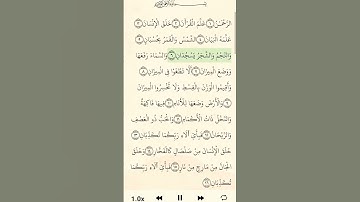 الرَّحْمَٰنُ ۝١ عَلَّمَ الْقُرْآنَ ۝٢ خَلَقَ الْإِنسَانَ ۝٣
عَلَّمَهُ الْبَيَانَ ۝٤ الشَّمْسُ وَالْقَمَرُ بِحُسْبَانٍ ۝٥
وَالنَّجْمُ وَالشَّجَرُ يَسْجُدَانِ ۝٦ وَالسَّمَاءَ رَفَعَهَا
وَوَضَعَ الْمِيزَانَ ۝٧ أَلَّا تَطْغَوْا فِي الْمِيزَانِ ۝٨
وَأَقِيمُوا الْوَزْنَ بِالْقِسْطِ وَلَا تُخْسِرُوا الْمِيزَانَ
۝٩ وَالْأَرْضَ وَضَعَهَا لِلْأَنَامِ ۝١٠ فِيهَا فَاكِهَةٌ
وَالنَّخْلُ ذَاتُ الْأَكْمَامِ ۝١١ وَالْحَبُّ ذُو الْعَصْفِ
وَالرَّيْحَانُ ۝١٢ فَبِأَيِّ آلَاءِ رَبِّكُمَا تُكَذِّبَانِ ۝١٣
خَلَقَ الْإِنسَانَ مِن صَلْصَالٍ كَالْفَخَّارِ ۝١٤ وَخَلَقَ
الْجَانَّ مِن مَّارِجٍ مِّن نَّارٍ ۝١٥ فَبِأَيِّ آلَاءِ رَبِّكُمَا
تُكَذِّبَانِ ۝١٦
1.0x